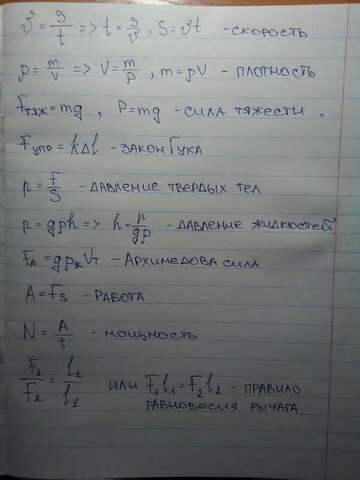 v = S/t => t = S/v, S = vt - скорость
ρ = m/V => V = m/ρ, m = ρV - плотность
Fтяж = mg, P = mg - сила тяжести.
Fупр = kΔl - закон Гука
p = F/S - давление твердых тел
p = gρh => h = p/gρ - давление жидкостей
FА = gρжVт - Архимедова сила
A = Fs - работа
N = A/t - мощность
F1/F2 = l2/l1 или F1l1 = F2l2 - правило
равновесия рычага